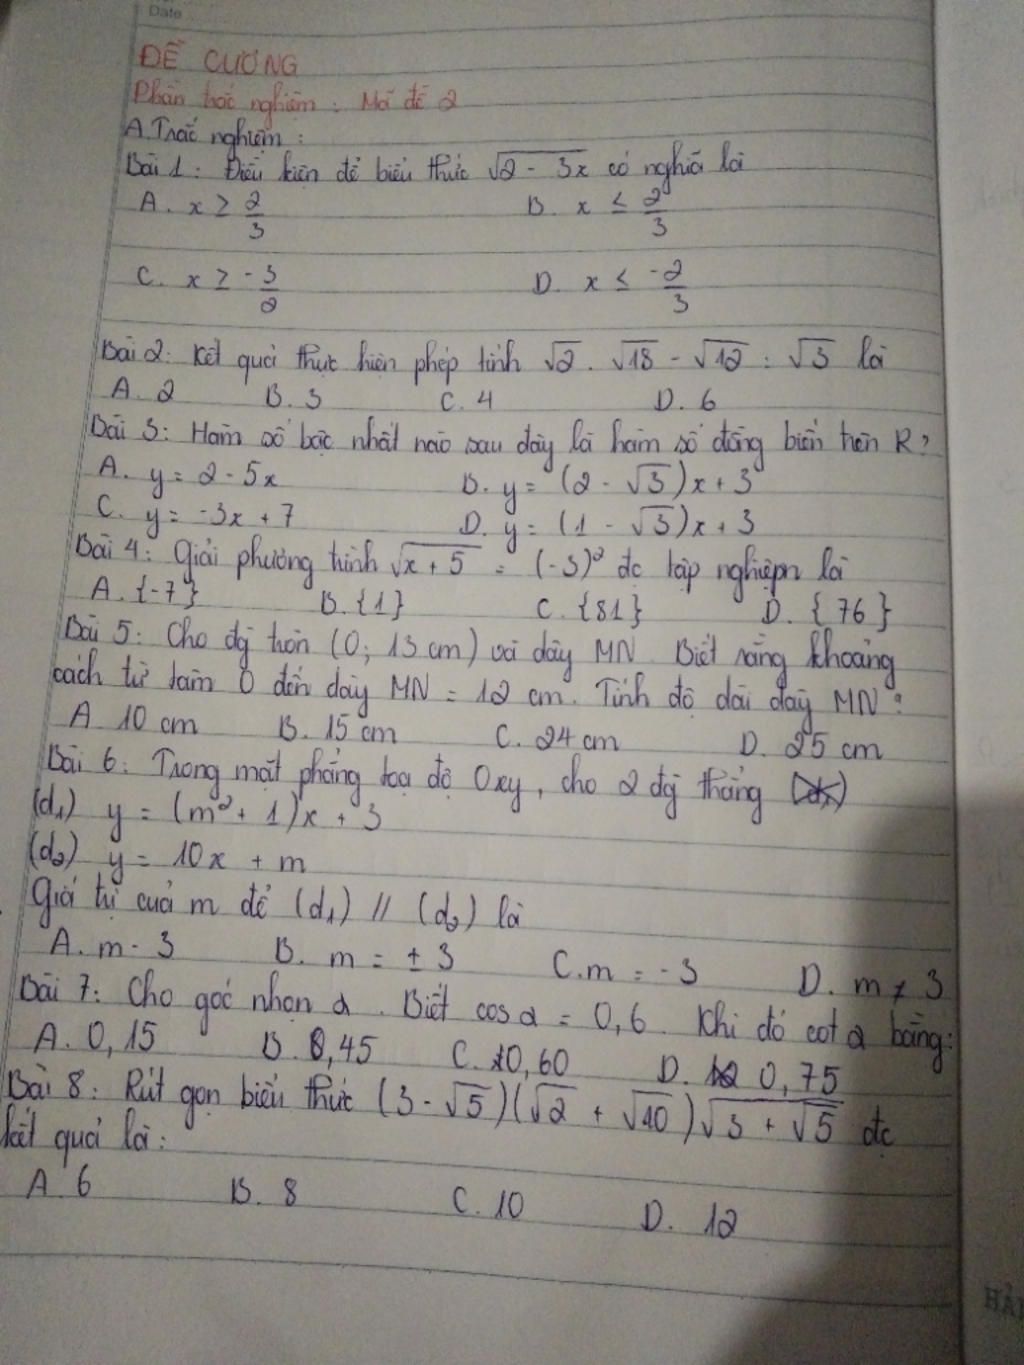 Date
ĐỀ CƯƠNG
Phần trắc nghiệm : Mã đề 2
A. Trắc nghiệm :
Bài 1 : Điều kiện để biểu thức √(2 - 3x) có nghĩa là
A. x ≥ 2/3 B. x ≤ 2/3
C. x ≥ -3/2 D. x ≤ -2/3
Bài 2: Kết quả thực hiện phép tính √2 . √18 - √12 : √3 là
A. 2 B. 3 C. 4 D. 6
Bài 3: Hàm số bậc nhất nào sau đây là hàm số đồng biến trên R?
A. y = 2 - 5x B. y = (2 - √3)x + 3
C. y = -3x + 7 D. y = (1 - √3)x + 3
Bài 4: Giải phương trình √(x + 5) = (-3)² đc tập nghiệpn là
A. {-7} B. {1} C. {81} D. {76}
Bài 5: Cho đg tròn (O; 13 cm) và dây MN. Biết rằng khoảng
cách từ tâm O đến dây MN = 12 cm. Tính độ dài dây MN?
A 10 cm B. 15 cm C. 24 cm D. 25 cm
Bài 6: Trong mặt phẳng toạ độ Oxy, cho 2 đg thẳng
(d₁) y = (m² + 1)x + 3
(d₂) y = 10x + m
Giá trị của m để (d₁) // (d₂) là
A. m - 3 B. m = ± 3 C. m = -3 D. m ≠ 3
Bài 7: Cho góc nhọn α. Biết cos α = 0,6. Khi đó cot α bằng:
A. 0,15 B. 0,45 C. 0,60 D. 0,75
Bài 8: Rút gọn biểu thức (3 - √5)(√2 + √10)√(3 + √5) đc
kết quả là:
A. 6 B. 8 C. 10 D. 12